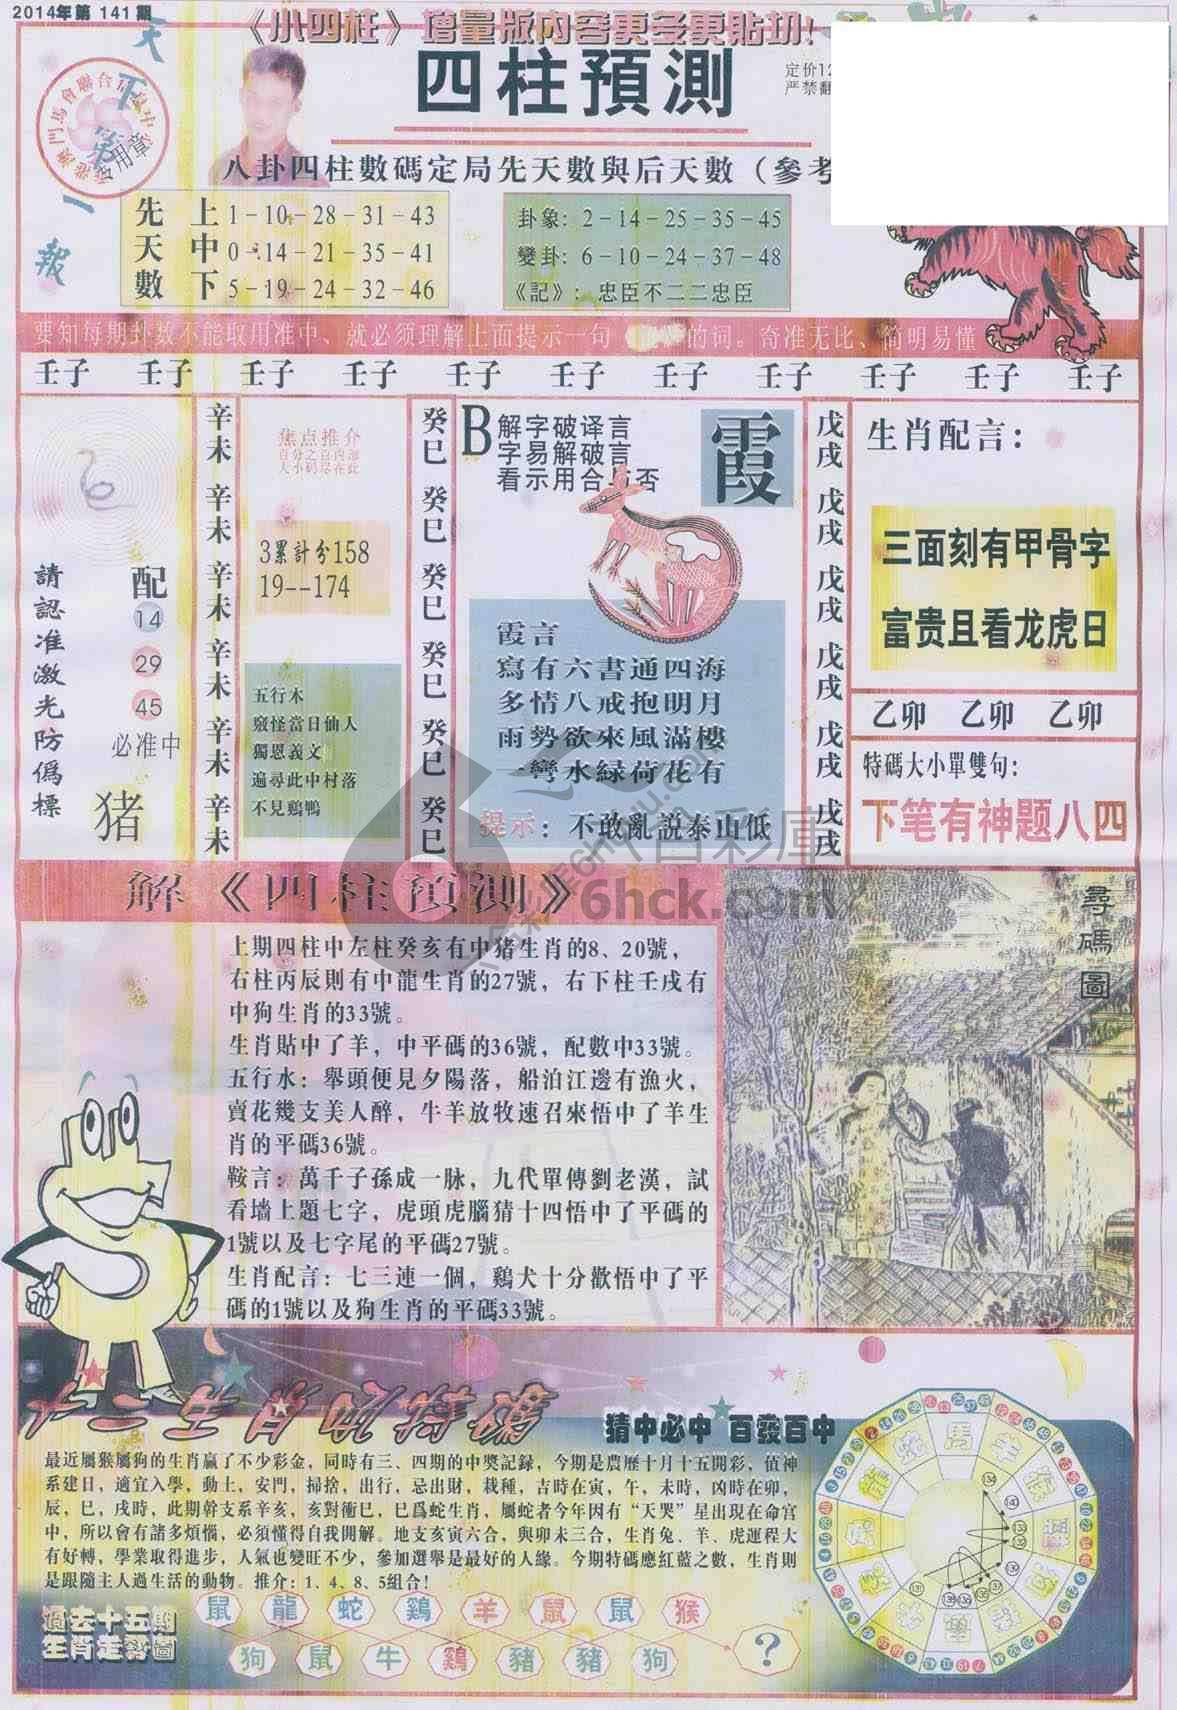 2014年第 141 期
《小四柱》增量版内容更多更贴切!
天下第一報
四柱預測
定价12
严禁翻
八卦四柱數碼定局先天數與后天數（參考
先天數
上 1-10-28-31-43
中 0-14-21-35-41
下 5-19-24-32-46
卦象: 2-14-25-35-45
變卦: 6-10-24-37-48
《記》: 忠臣不二二忠臣
要知每期卦数不能取用准中、就必须理解上面提示一句《記》的词。奇准无比、简明易懂
壬子 壬子 壬子 壬子 壬子 壬子 壬子 壬子 壬子 壬子 壬子
請認准激光防僞標
配
14
29
45
必准中
猪
辛未 辛未 辛未 辛未 辛未 辛未
焦点推介
百分之百内部
大小码尽在此
3累計分158
19--174
五行木
竅怪當日仙人
獨恩義文
遍尋此中村落
不見鷄鴨
癸巳 癸巳 癸巳 癸巳 癸巳 癸巳
B
解字破译言
字易解破言
看示用合与否
霞
霞言
寫有六書通四海
多情八戒抱明月
雨勢欲來風滿樓
一彎水緑荷花有
提示: 不敢亂說泰山低
戊戌 戊戌 戊戌 戊戌 戊戌 戊戌
生肖配言:
三面刻有甲骨字
富贵且看龙虎日
乙卯 乙卯 乙卯
特碼大小單雙句:
下笔有神题八四
6hck.com
解《四柱預測》
上期四柱中左柱癸亥有中猪生肖的8、20號，
右柱丙辰則有中龍生肖的27號，右下柱壬戌有
中狗生肖的33號。
生肖貼中了羊，中平碼的36號，配數中33號。
五行水：舉頭便見夕陽落，船泊江邊有漁火，
賣花幾支美人醉，牛羊放牧速召來悟中了羊生
肖的平碼36號。
鞍言：萬千子孫成一脉，九代單傳劉老漢，試
看墻上題七字，虎頭虎腦猜十四悟中了平碼的
1號以及七字尾的平碼27號。
生肖配言：七三連一個，鷄犬十分歡悟中了平
碼的1號以及狗生肖的平碼33號。
尋碼圖
猜中必中 百發百中
最近屬猴屬狗的生肖贏了不少彩金，同時有三、四期的中獎記録，今期是農歷十月十五開彩，值神
系建日，適宜入學，動土，安門，掃捨，出行，忌出財，栽種，吉時在寅，午，未時，凶時在卯，
辰，巳，戌時，此期幹支系辛亥，亥對衝巳，巳爲蛇生肖，屬蛇者今年因有“天哭”星出現在命宫
中，所以會有諸多煩惱，必須懂得自我開解。地支亥寅六合，與卯未三合，生肖兔、羊、虎運程大
有好轉，學業取得進步，人氣也變旺不少，參加選舉是最好的人緣。今期特碼應紅藍之數，生肖則
是跟隨主人過生活的動物。推介：1、4、8、5組合！
過去十五期
生肖走勢圖
鼠 龍 蛇 鷄 羊 鼠 鼠 猴
狗 鼠 牛 鷄 豬 豬 狗 ?
馬 羊